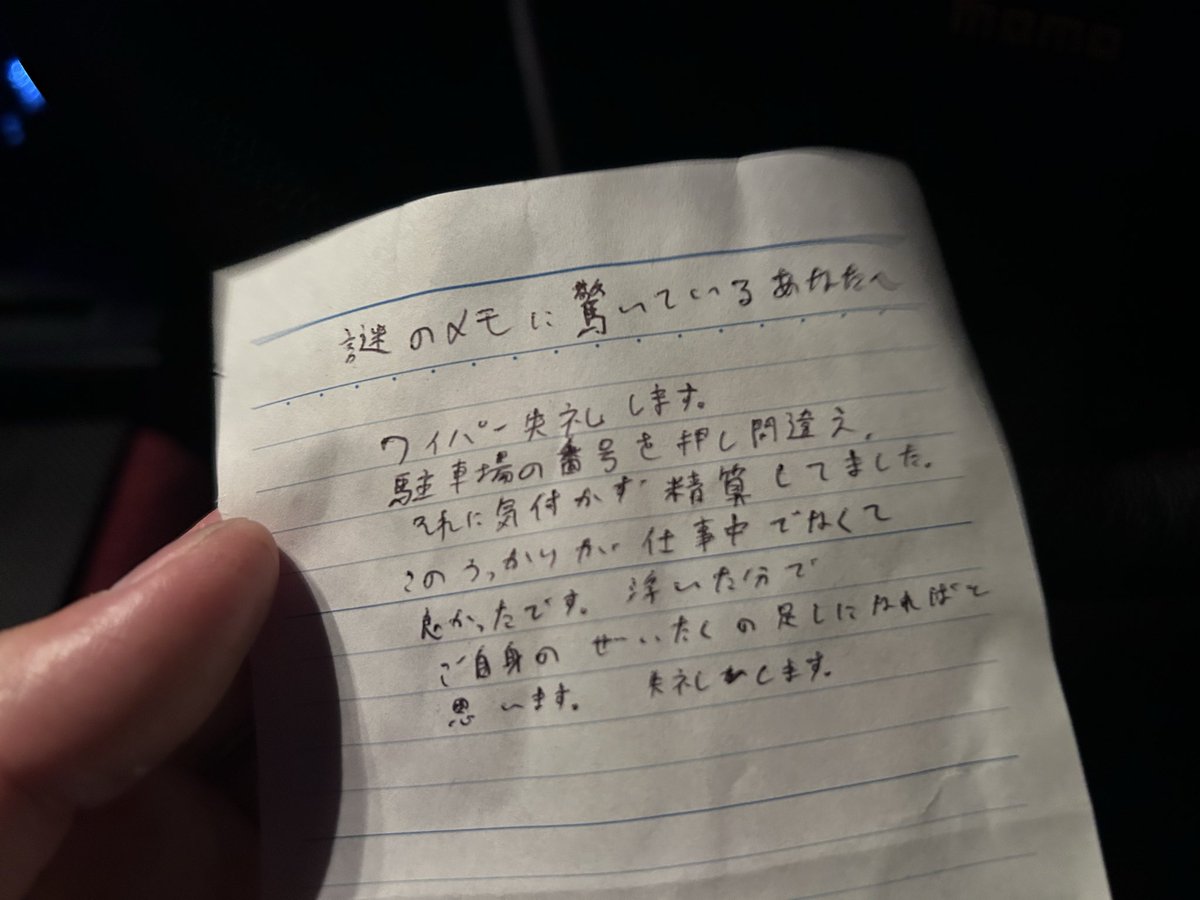 momo
謎のメモに驚いているあなたへ
ワイパー失礼します。
駐車場の番号を押し間違え、
それに気付かず精算してました。
このうっかりが仕事中でなくて
良かったです。浮いた分で
ご自身のぜいたくの足しになればと
思います。 失礼します。